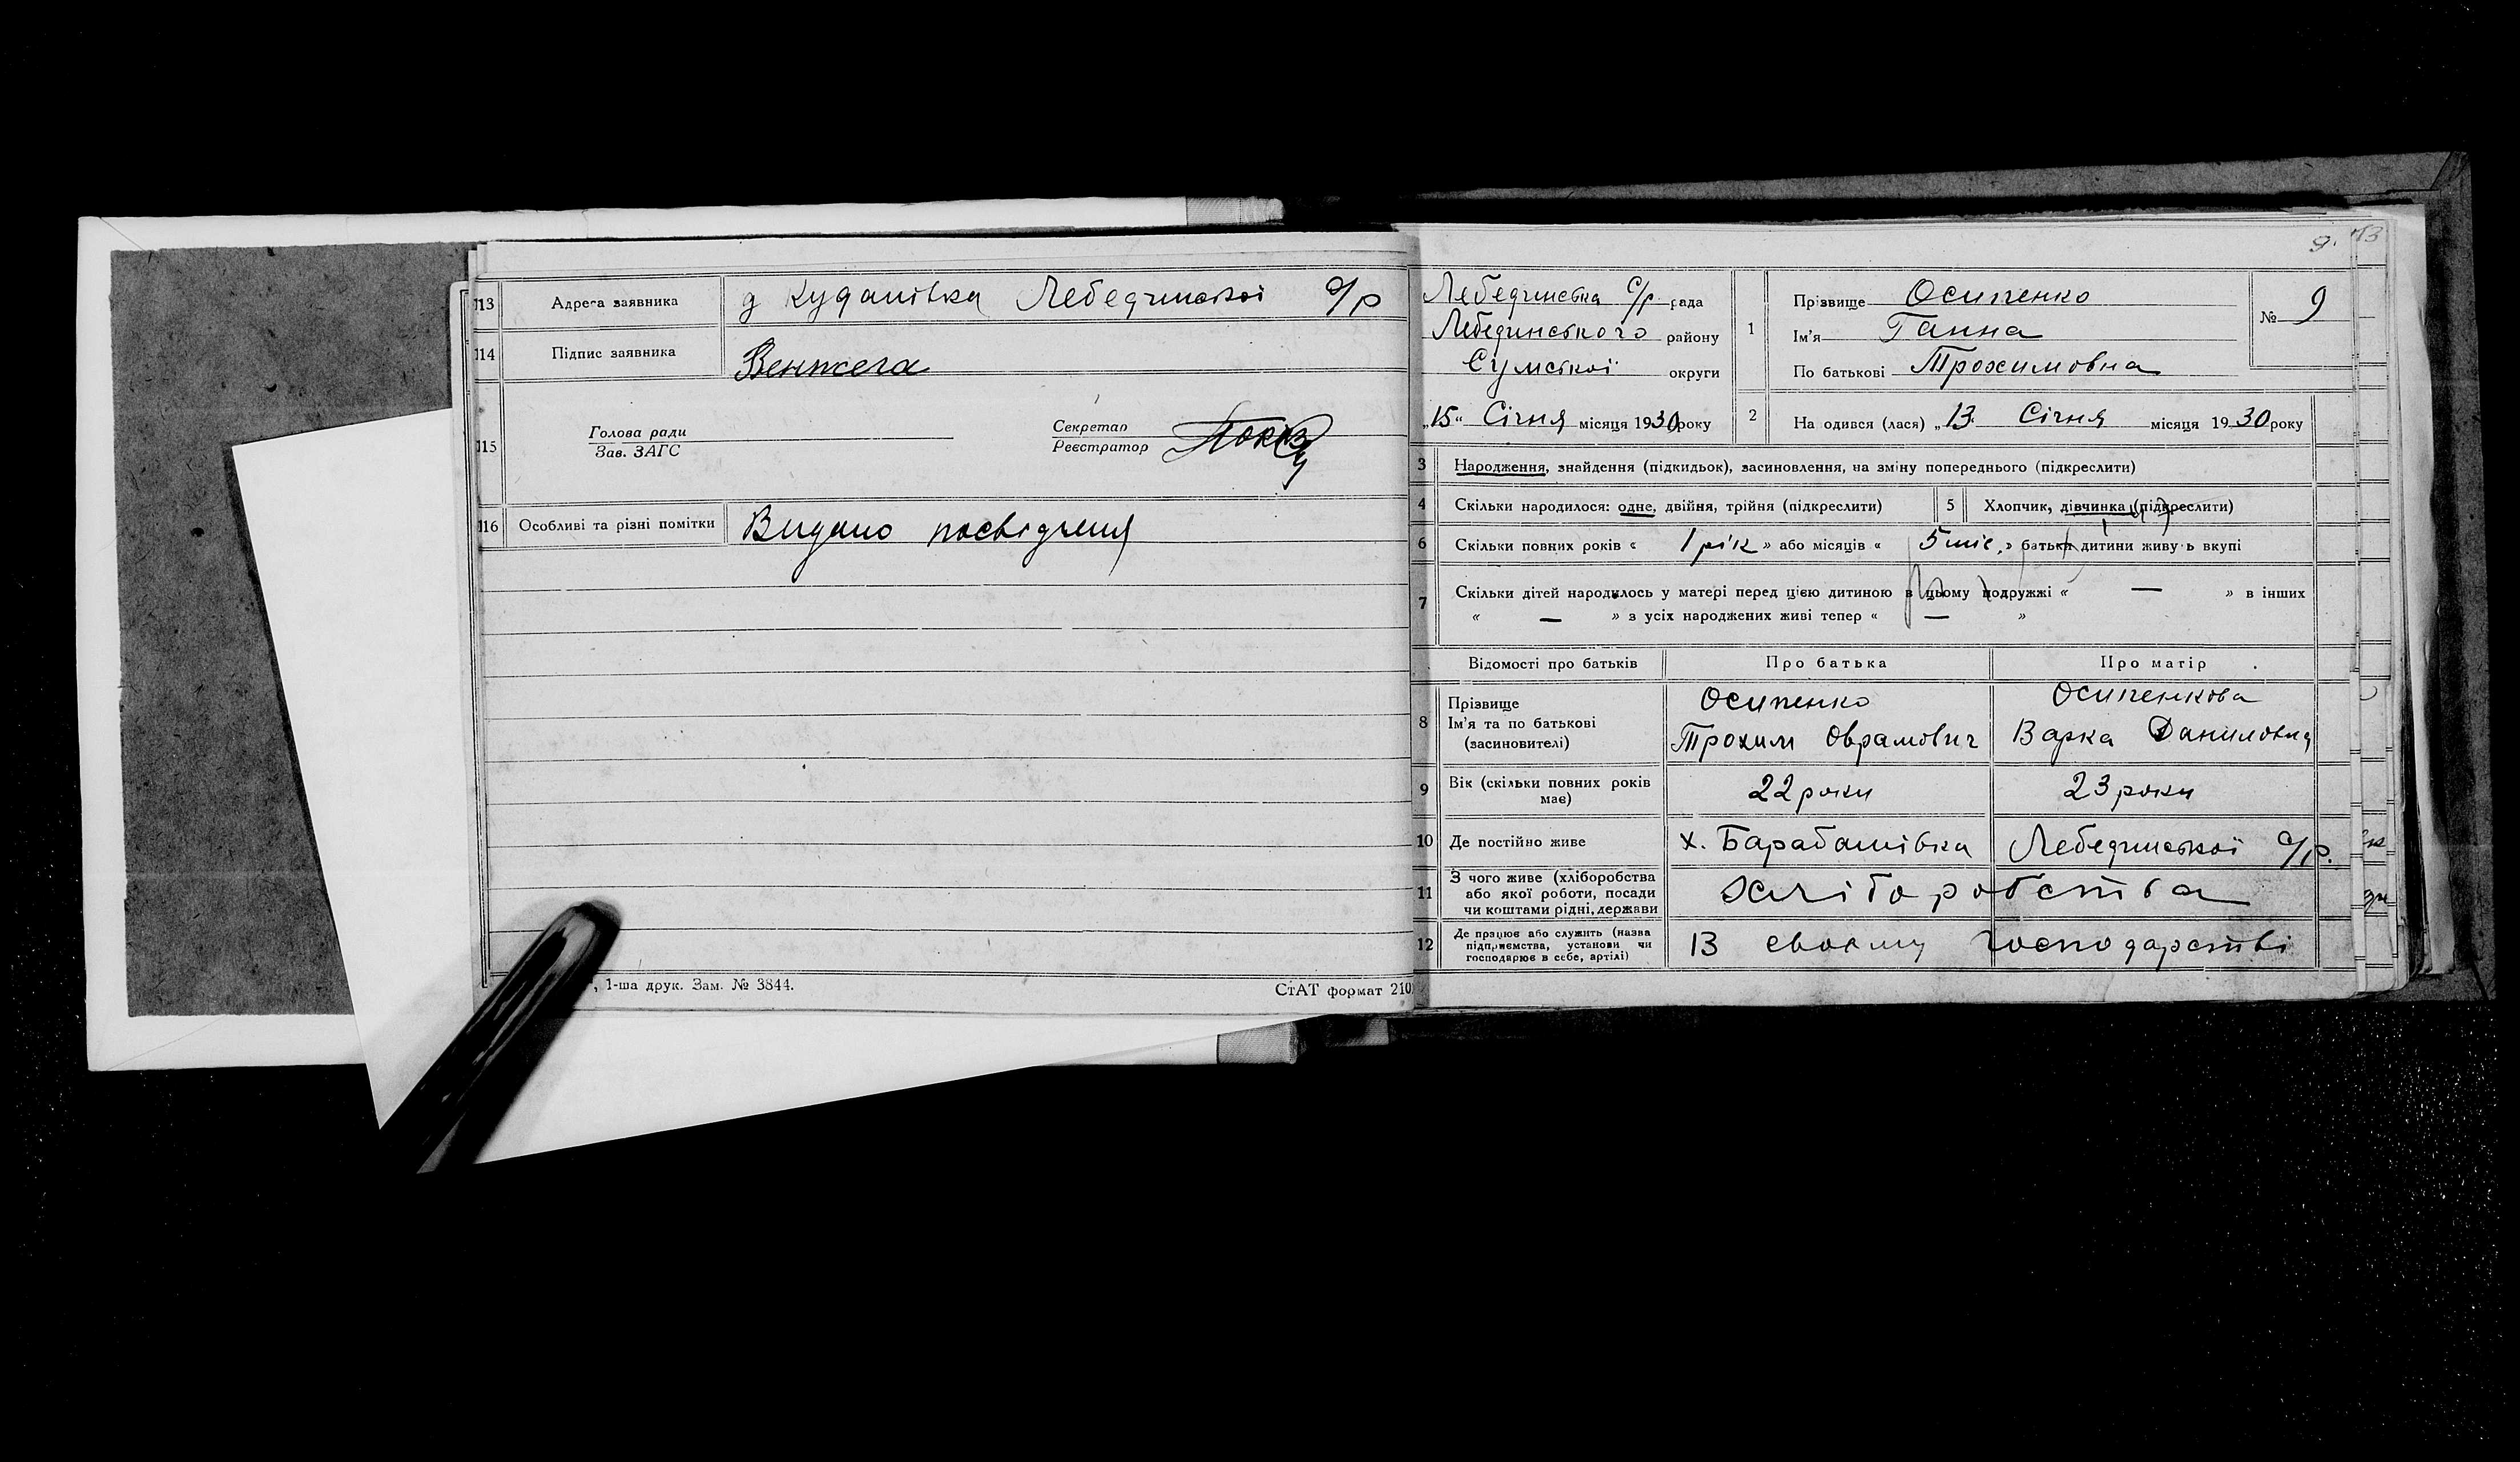 113 Адреса заявника д Куданівка Лебединської с/р
114 Підпис заявника Венжега
115 Голова ради
Зав. ЗАГС
Секретар
Реєстратор
116 Особливі та різні помітки Видано посвідченя
, 1-ша друк. Зам. № 3844.
СтАТ формат 210
9. 13
Лебединська с/р рада
Лебединського району
Сумської округи
„15“ Січня місяця 1930 року
1 Прізвище Осипенко
Ім'я Ганна
По батькові Трохимовна
№ 9
2 На одився (лася) „13 Січня місяця 1930 року
3 Народження, знайдення (підкидьок), засиновлення, на зміну попереднього (підкреслити)
4 Скільки народилося: одне, двійня, трійня (підкреслити) 5 Хлопчик, дівчинка (підкреслити)
6 Скільки повних років « 1 рік » або місяців « 5 міс. » батьки дитини живу ь вкупі
7 Скільки дітей народилось у матері перед цією дитиною в цьому подружжі « — » в інших
« — » з усіх народжених живі тепер « — »
Відомості про батьків Про батька Про матір
8 Прізвище
Ім'я та по батькові
(засиновителі)
Осипенко
Трохим Оврамович
Осипенкова
Варка Даниловна
9 Вік (скільки повних років
має)
22 роки 23 роки
10 Де постійно живе х. Барабашівка Лебединської с/р.
11 З чого живе (хліборобства
або якої роботи, посади
чи коштами рідні, держави
хліборобства
12 Де працює або служить (назва
підприємства, установи чи
господарює в себе, артілі)
В своєму господарстві